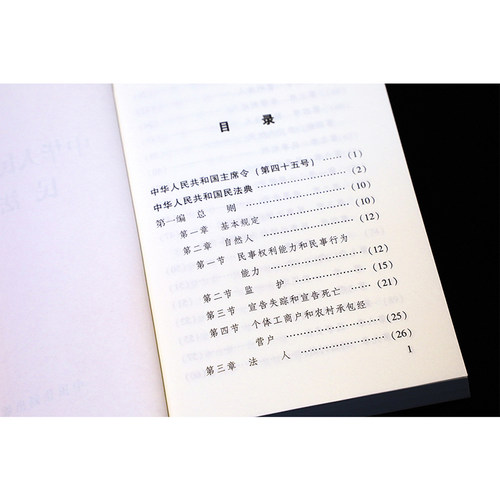 目 录
中华人民共和国主席令（第四十五号） ……（1）
中华人民共和国民法典 ……………………（2）
第一编 总 则 ………………………………（10）
第一章 基本规定 ……………………………（10）
第二章 自然人 ………………………………（12）
第一节 民事权利能力和民事行为
能力 ……………………………（12）
第二节 监 护 …………………………（15）
第三节 宣告失踪和宣告死亡 ……………（21）
第四节 个体工商户和农村承包经
营户 ……………………………（25）
第三章 法 人 ………………………………（26）
1